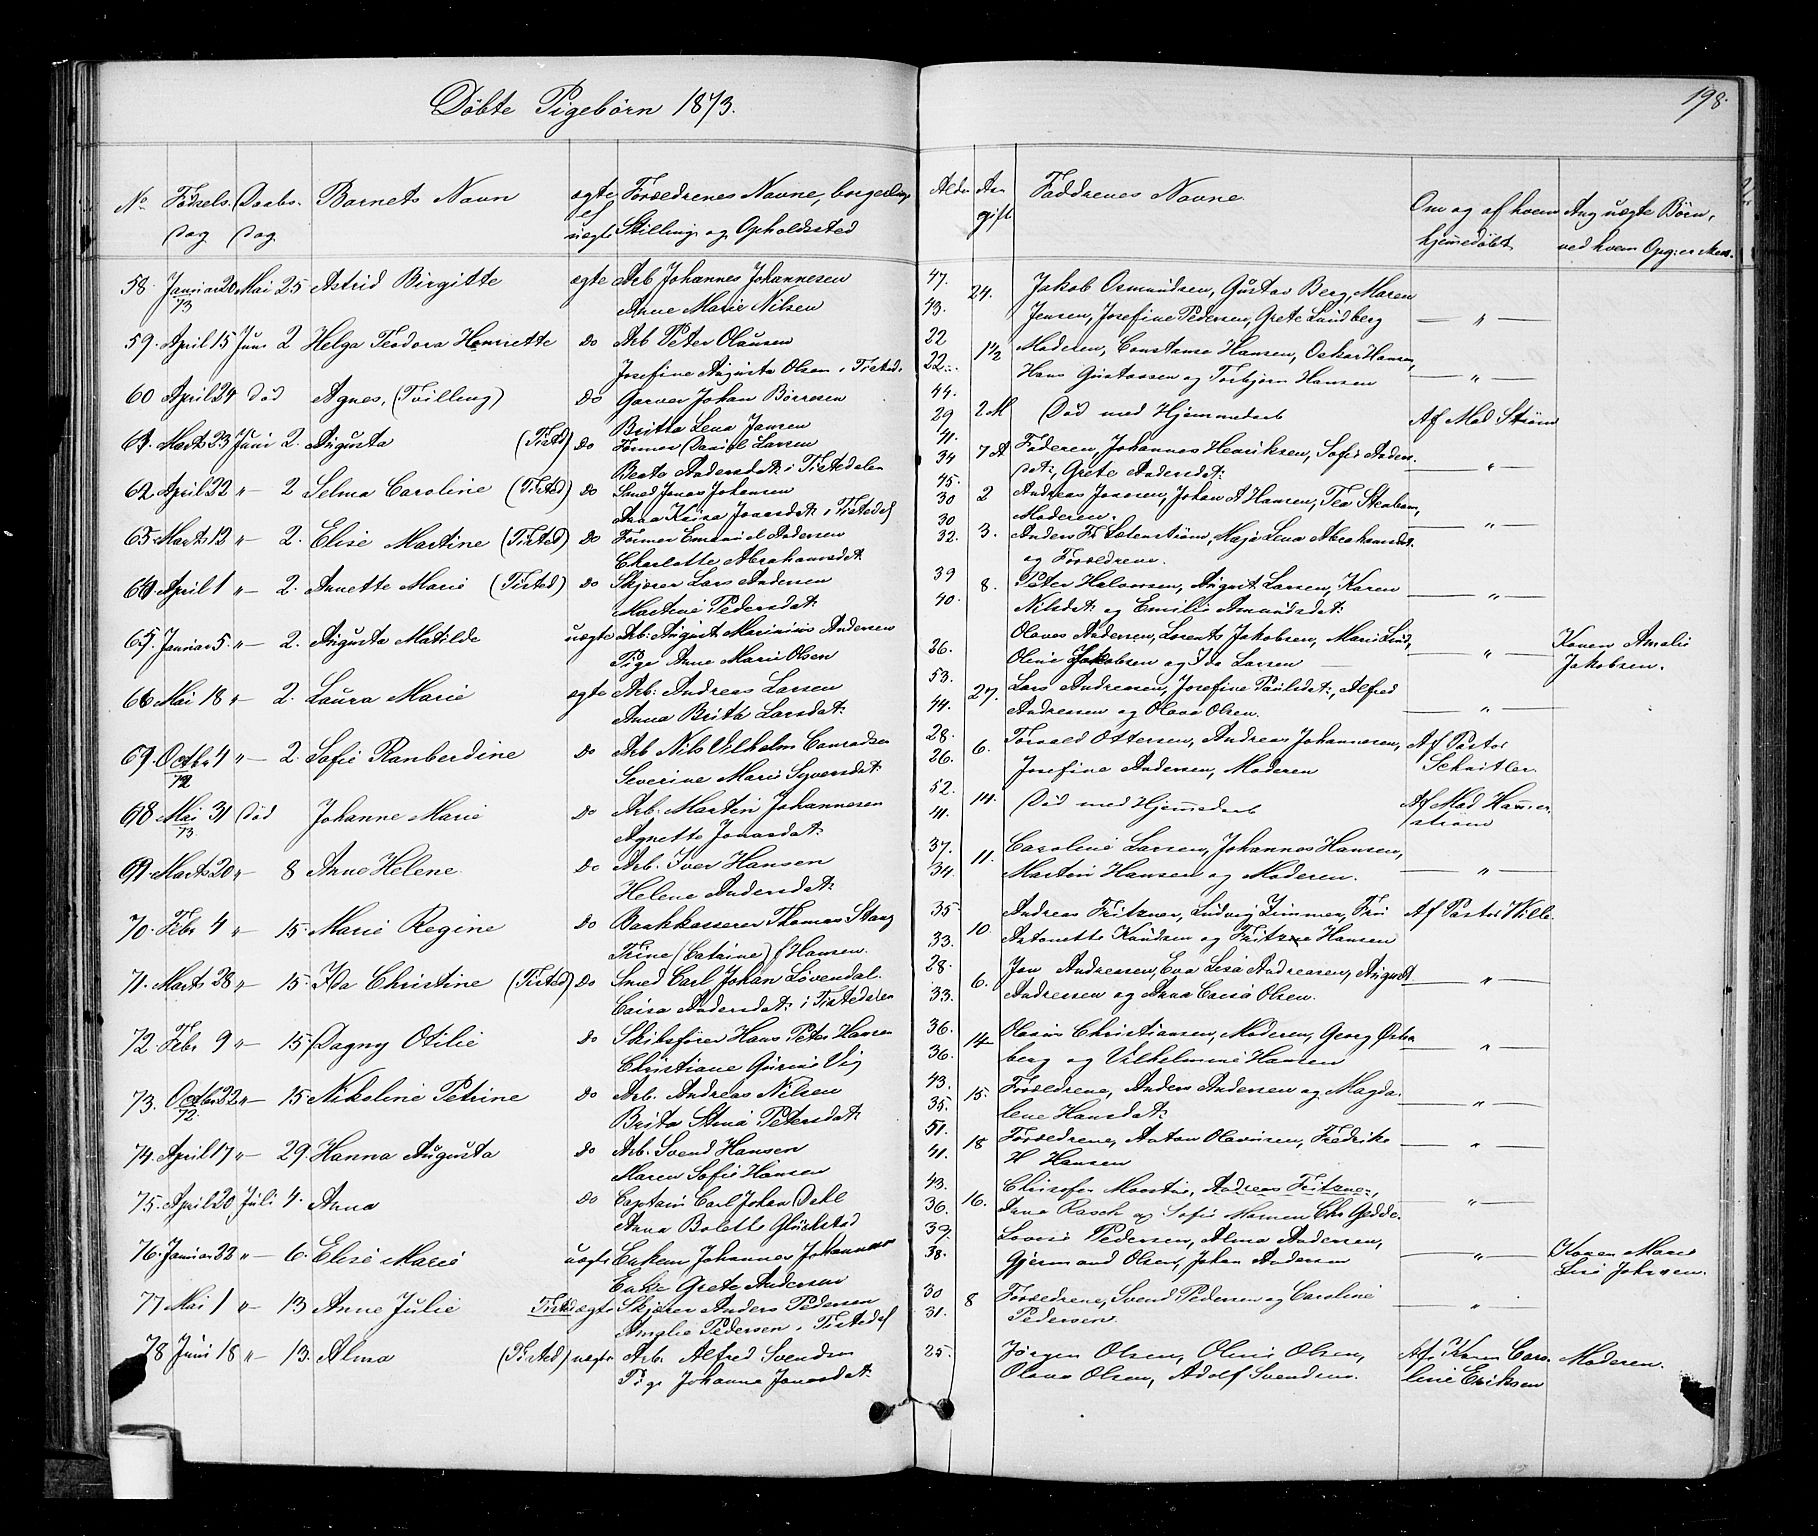 Døbte Pigebørn 1873.
198.
No Fødsels Dag Daabs Dag Barnets Navn ægte ell uægte Forældrenes Navne, borgerlig Stilling og Opholdssted Alder An gift Faddrenes Navne Om og af hvem hjemmedøbt Ang uægte Børn, ved hvem Opg: er
58. Januar 20 Mai 25 Astrid Birgitte ægte Arb Johannes Johannesen 47. 24. Jakob Osmundsen, Gustav Berg, Maren
73 Anne Marie Nilsen 43. Jensen, Josefine Pedersen, Grete Lundberg — " —
59. April 15 Juni 2 Helga Teodora Henriette do Arb Peter Olausen 22 1½ Moderen, Constanse Hansen, Oskar Hansen,
Josefine Augusta Olsen i Tisted. 22. Hans Gustavsen og Torbjørn Hansen — " —
60 April 24 Død Agnes, (Tvilling) do Garver Johan Børresen 44. 2 M Død med Hjemmedaab Af Mad Strøm
Britta Lena Jansen 29
61. Marts 23 Juni 2. Augusta (Tisted) do Former Daniel Larsen 41. 7 A Faderen, Johannes Henriksen, Sofie Anders
Beata Andersdat: i Tistedalen 34 dat:, Grete Andersdat: — " —
62 April 22 " — 2 Selma Caroline (Tisted) do Smed Jonas Johansen 45. 2 Andreas Jonasen, Johan A Hansen, Tea Stenham,
Anna Kaisa Jonasdat: i Tistedal 30 Moderen. — " —
63. Marts 12 " — 2. Elise Martine (Tisted) do Former Emanuel Andersen 30 3. Anders Fr Letenstrøm, Maja Lena Abrahamsdat.
Charlotte Abrahamsdat: 32. og Forældrene. — " —
64 April 1 " — 2. Annette Marie (Tisted) do Skjærer Lars Andersen 39 8. Peter Halvorsen, August Larsen, Karen
Martine Pedersdat: 40. Nilsdat: og Emilie Amundsdat: — " —
65. Januar 5. " — 2. Augusta Matilde uægte Arb: August Marinius Andersen Olaves Andersen, Lorents Jakobsen, Marie Lund, Konen Amalie
Pige Anne Marie Olsen 26. Oline Jakobsen og Ida Larsen — " — Jakobsen.
66 Mai 18 " — 2. Laura Marie ægte Arb: Andreas Larsen 53. 27. Lars Andreasen, Josefine Paulsdat:, Alfred
Anna Britta Larsdat: 44. Andresen og Olava Olsen. — " —
69. Octbr 4 " — 2. Sofie Ranberdine do Arb Nils Vilhelm Conradsen 28. 6. Torvald Ottersen, Andreas Johannesen, Af Pastor
72 Severine Marie Syversdat: 26. Josefine Andersen, Moderen Schnitler.
68 Mai 31 Død Johanne Marie do Arb: Martin Johannesen 52. 14. Død med Hjemmedaab Af Mad Hammer-
73. Agnette Jonasdat: 41. strøm
69. Marts 20 " — 8 Anne Helene. do Arb: Iver Hansen 37. 11. Caroline Larsen, Johannes Hansen,
Helene Andersdat: 34. Martin Hansen og Moderen. — " —
70. Febr 4 " — 15. Marie Regine do Bankkasserer Thomas Stang 35 10 Andreas Fritzner, Ludvig Zimmer, Frü Af Pastor Wille
Trine (Catrine) f Hansen. 33. Antonette Knudsen og Fritzne Hansen
71. Marts 28 " — 15. Ida Christine (Tisted) do Smed Carl Johan Løvendal. 28. 6. Jon Andreasen, Eva Lisa Andreasen, August
Caisa Andersdat: i Tistedalen 33. Andresen og Anna Caisa Olsen. — " —
72. Febr 9 " — 15 Dagny Otilie do Skibsfører Hans Peter Hansen 36. 14 Olavus Christiansen, Moderen, Georg Østen
Christiane Gurine Vig 36. berg og Vilhelmine Hansen — " —
73. Octbr 22 " — 15 Nikoline Petrine do Arb. Andreas Nilsen 43. 15. Forældrene, Anders Andersen og Magda-
72. Brita Stina Petersdat: 35. lene Hansdat: — " —
74. April 17 " — 29. Hanna Augusta do Arb. Svend Hansen 51. 18 Forældrene, Anton Olavesen, Fredrike
Maren Sofie Hansen 41. H Hansen — " —
75. April 20 Juli 4. Anna do Captain Carl Johan Dehl 43. 16. Christofer, Andreas Fritzner,
Anna Bolette Gluckstad 36. Anna Rasch og Sofie Chr Gedde. " —
76. Januar 22 " — 6. Elise Marie uægte Enkem Johannes Johannesen 39. Lovise Pedersen, Alma Andersen, Konen Maren
Enke Grete Andersen 38. Gjermand Olsen, Johan Andersen — " — Lise Johnsen.
77 Mai 1 " — 13 Anne Julie Tisted ægte Skjærer Anders Pedersen 30 8 Forældrene, Svend Pedersen og Caroline
Amalie Pedersen i Tistedal 31. Pedersen. — " —
78 Juni 18 " — 13. Alma (Tisted) uægte Arb. Alfred Svendsen 25. Jørgen Olsen, Oline Olsen, Af Konen Caro- Moderen.
Pige Johanne Jonasdat: Olava Olsen, Adolf Svendsen. line Eriksen